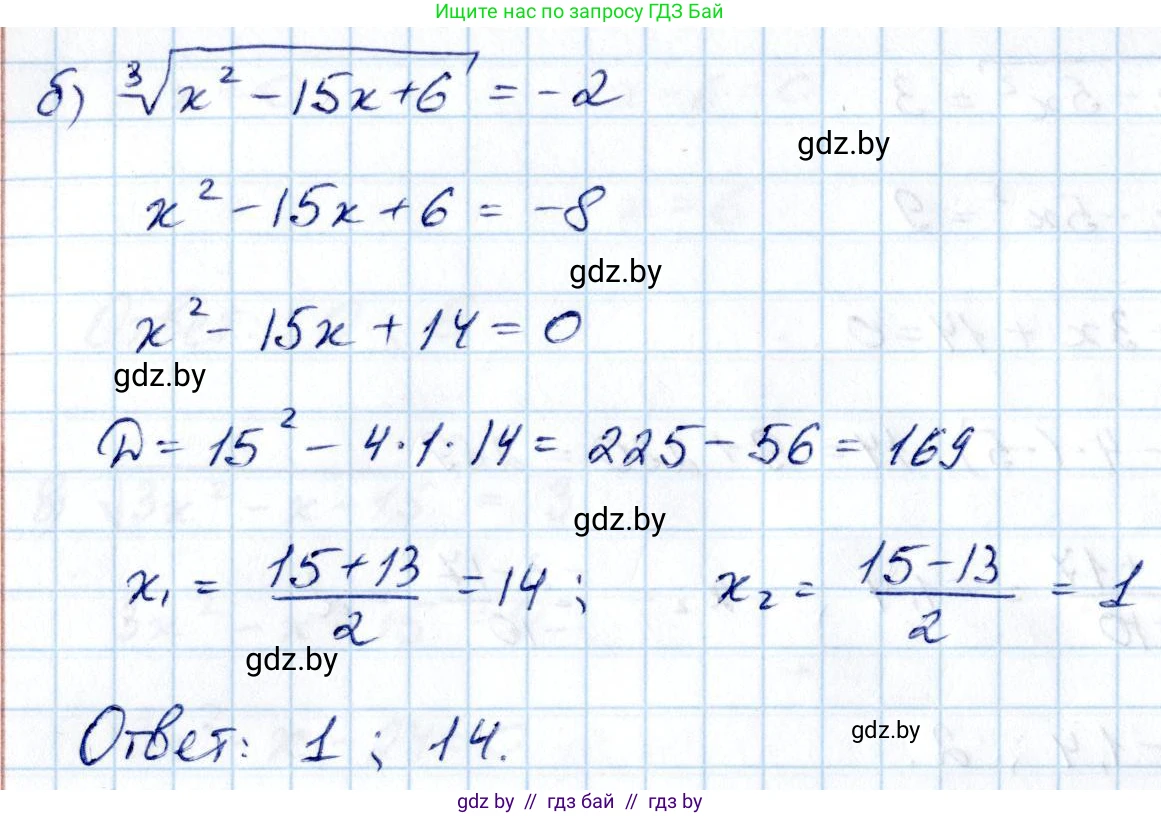 Ищите нас по запросу ГДЗ Бай
б) ∛(x² - 15x + 6) = -2
gdz.by
x² - 15x + 6 = -8
gdz.by
x² - 15x + 14 = 0
gdz.by
D = 15² - 4·1·14 = 225 - 56 = 169
gdz.by
x₁ = (15 + 13)/2 = 14; x₂ = (15 - 13)/2 = 1
gdz.by
Ответ: 1; 14.
gdz.by
gdz by // гдз бай // гдз by